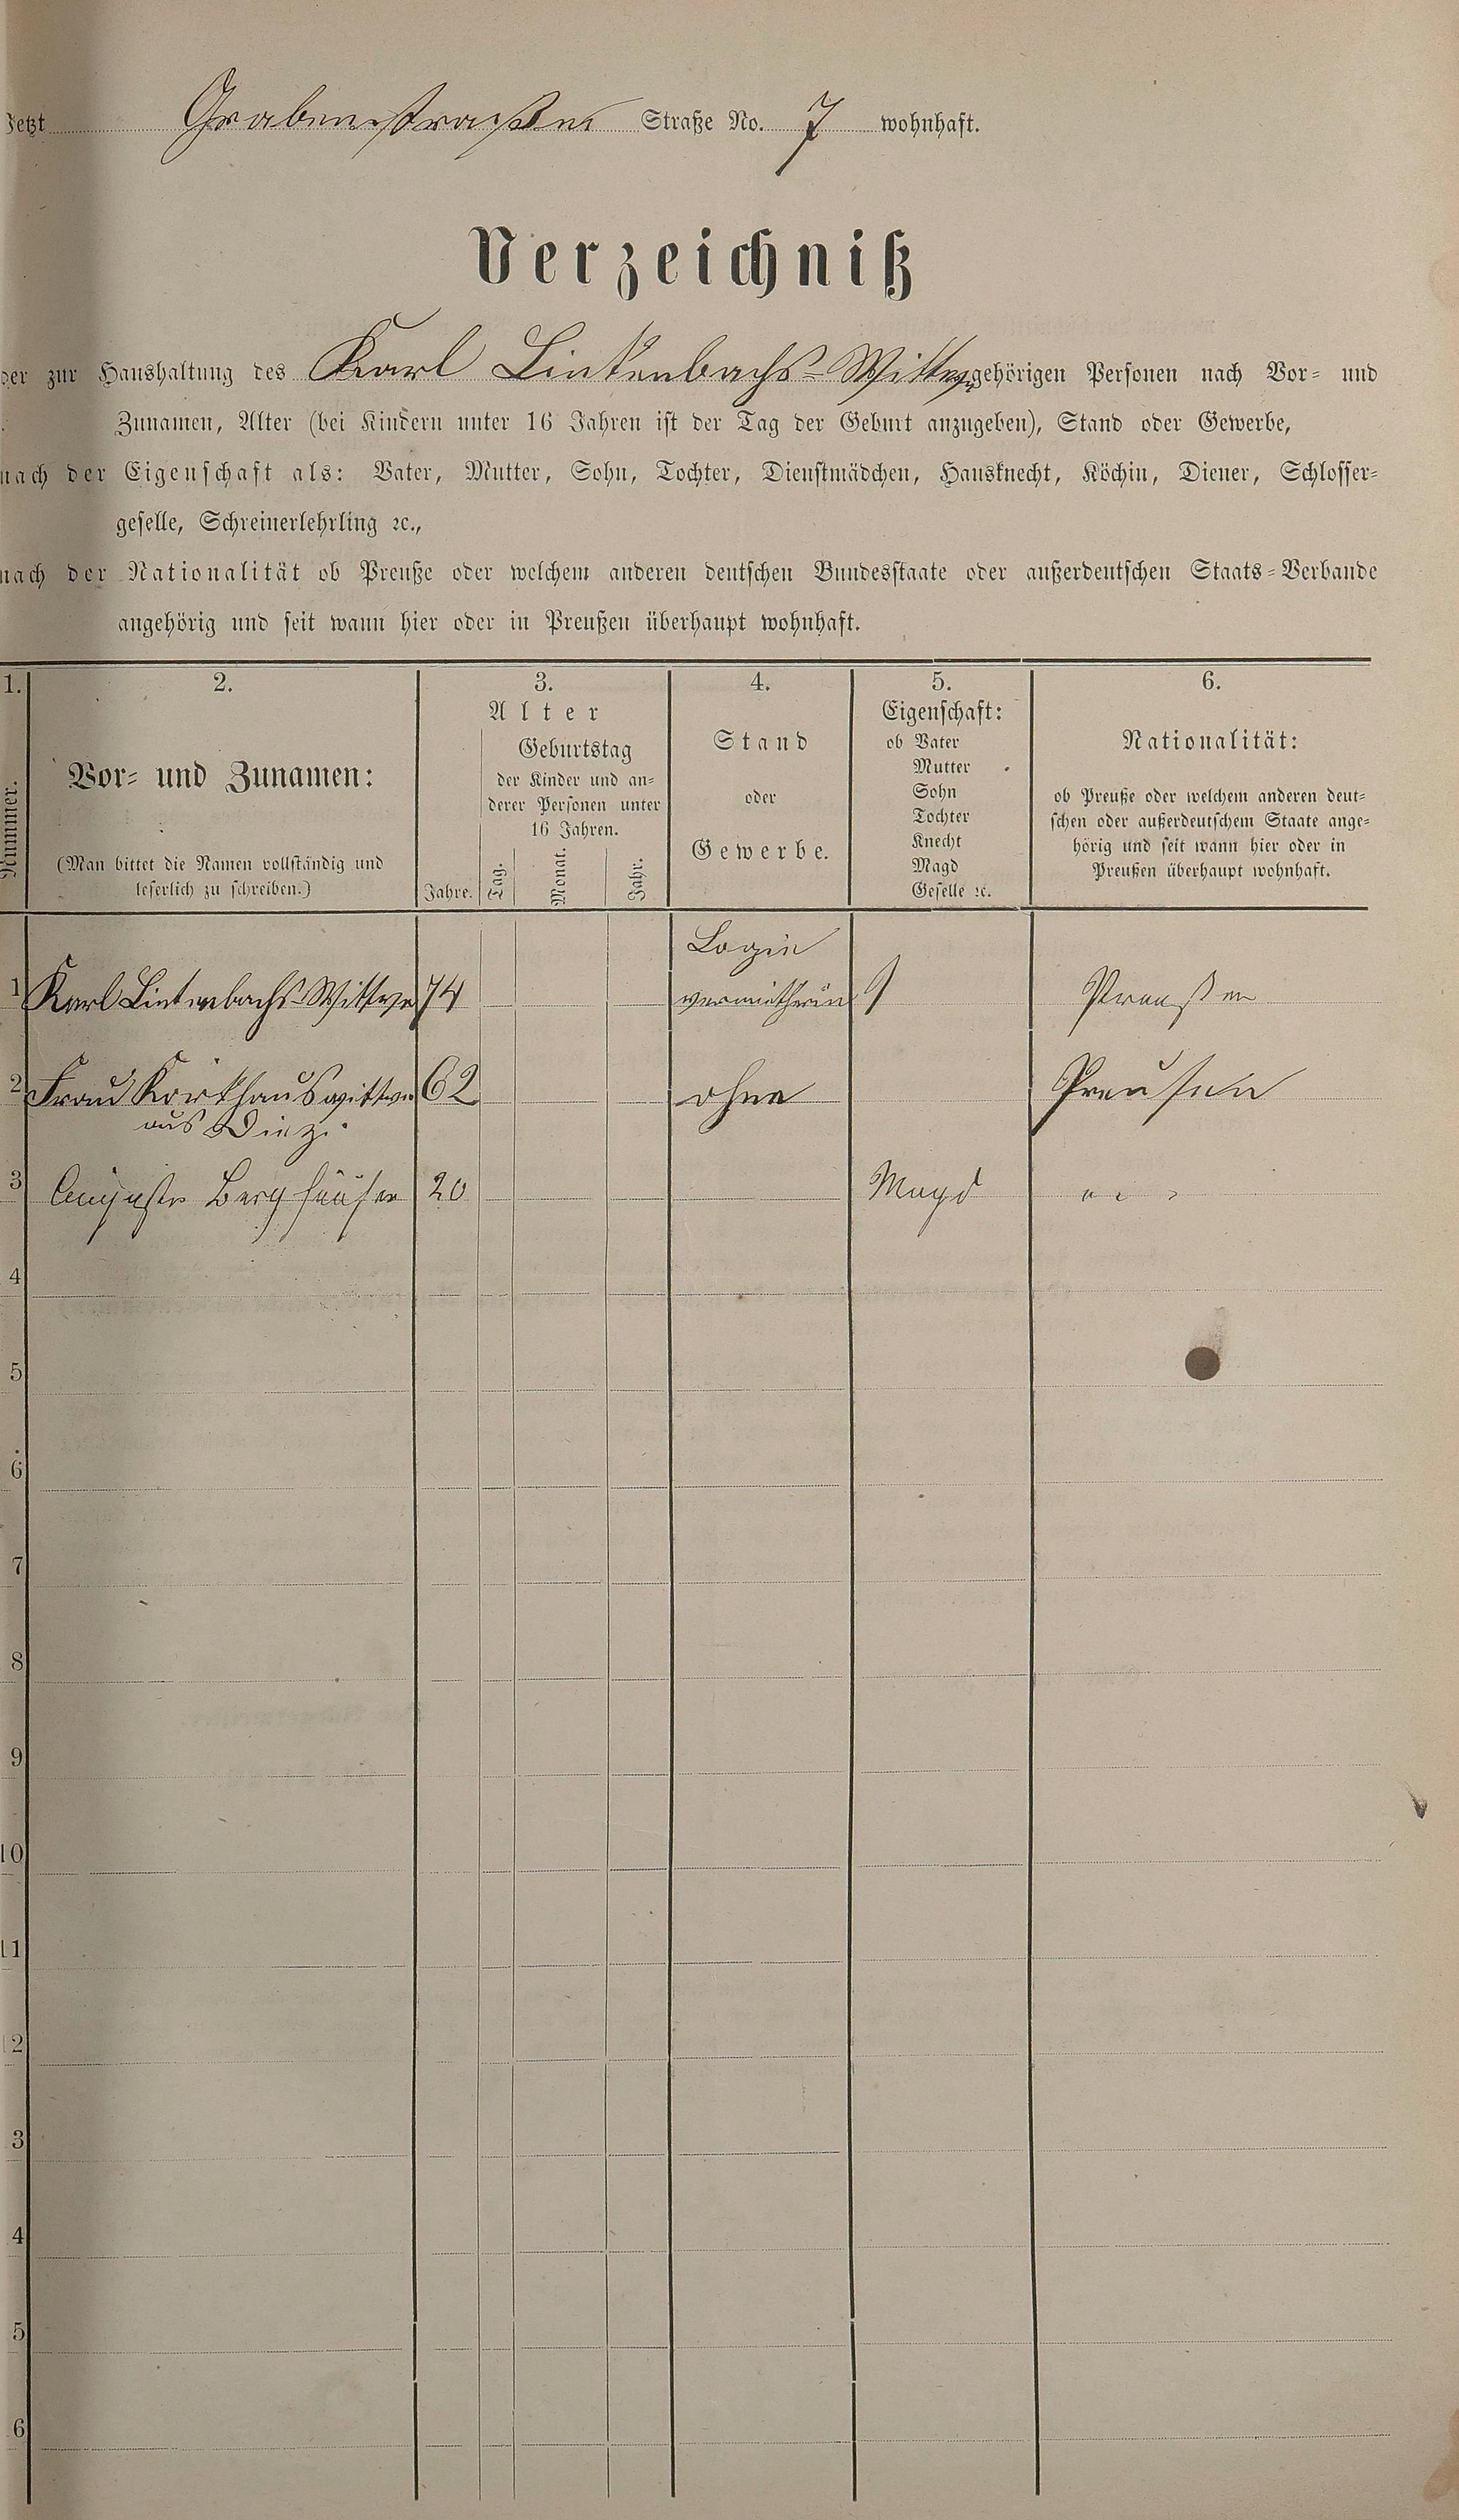 Jetzt Grabenstraßen Straße No. 7 wohnhaft.
Verzeichniß
der zur Haushaltung des Karl Lintenbachs-Wittwe gehörigen Personen nach Vor- und
Zunamen, Alter (bei Kindern unter 16 Jahren ist der Tag der Geburt anzugeben), Stand oder Gewerbe,
nach der Eigenschaft als: Vater, Mutter, Sohn, Tochter, Dienstmädchen, Hausknecht, Köchin, Diener, Schlosser-
geselle, Schreinerlehrling ꝛc.,
nach der Nationalität ob Preuße oder welchem anderen deutschen Bundesstaate oder außerdeutschen Staats-Verbande
angehörig und seit wann hier oder in Preußen überhaupt wohnhaft.
1. 2. 3. 4. 5. 6.
Nummer.
Vor- und Zunamen:
(Man bittet die Namen vollständig und
leserlich zu schreiben.)
Alter
Geburtstag
der Kinder und an-
derer Personen unter
16 Jahren.
Jahre. Tag. Monat. Jahr.
Stand
oder
Gewerbe.
Eigenschaft:
ob Vater
Mutter
Sohn
Tochter
Knecht
Magd
Geselle ꝛc.
Nationalität:
ob Preuße oder welchem anderen deut-
schen oder außerdeutschem Staate ange-
hörig und seit wann hier oder in
Preußen überhaupt wohnhaft.
Logie
1 Karl Lintenbachs-Wittwe 74 vermietherin Preußen
2 Frau Korkhaus wittwe 62 ohne Preusen
aus Diez
3 Auguste Berghäuser 20 Magd
4
5
6
7
8
9
10
11
12
3
4
5
6